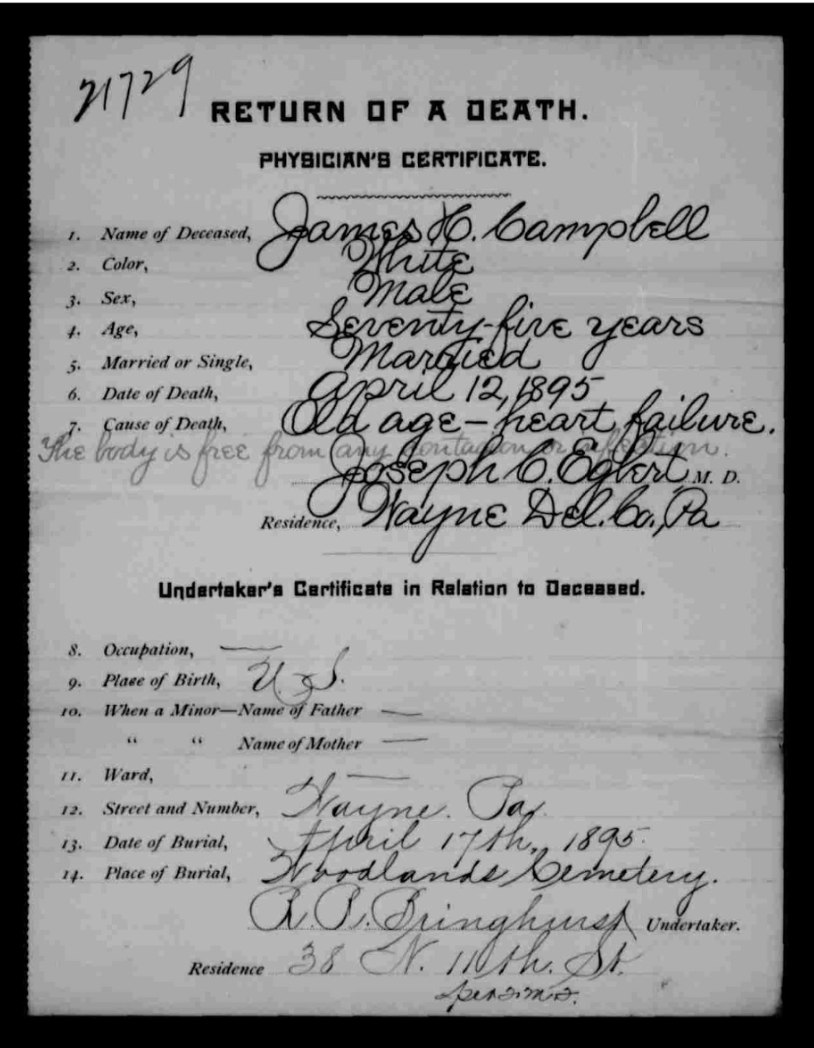 21729
RETURN OF A DEATH.
PHYSICIAN'S CERTIFICATE.
1. Name of Deceased, James H. Campbell
2. Color, White
3. Sex, Male
4. Age, Seventy-five years
5. Married or Single, Married
6. Date of Death, April 12, 1895
7. Cause of Death, Old age - heart failure.
The body is free from any contagion or infection.
Joseph C. Egbert M. D.
Residence, Wayne Del. Co., Pa
Undertaker's Certificate in Relation to Deceased.
8. Occupation, —
9. Place of Birth, U. S.
10. When a Minor—Name of Father —
" " Name of Mother —
11. Ward, —
12. Street and Number, Wayne. Pa.
13. Date of Burial, April 17th, 1895.
14. Place of Burial, Woodlands Cemetery.
R. R. Bringhurst Undertaker.
Residence 38 N. 11th. St.